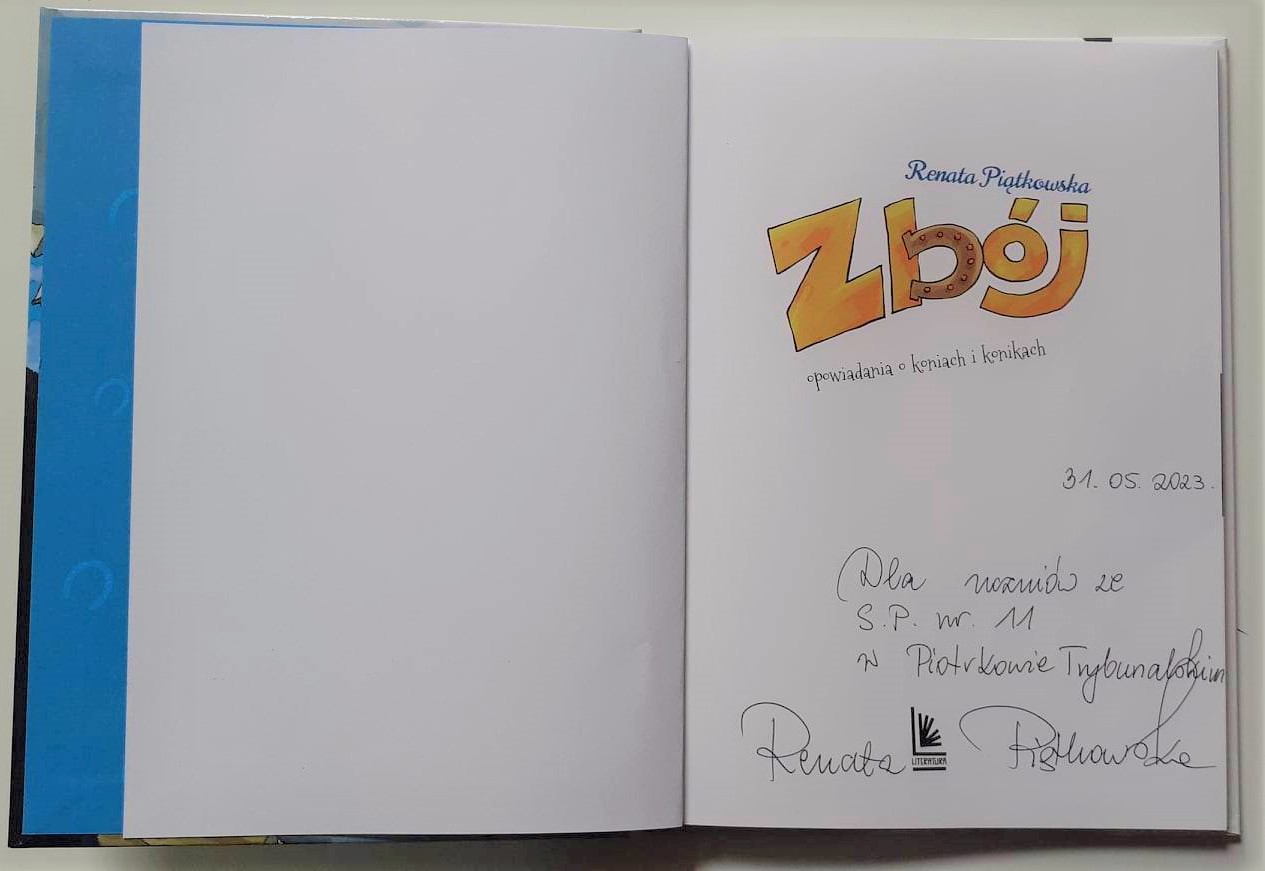 Renata Piątkowska
Zbój
opowiadania o koniach i konikach
31. 05. 2023.
Dla uczniów ze
S.P. nr. 11
w Piotrkowie Trybunalskim
Renata Piątkowska
LITERATURA